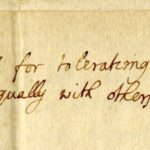 for tolerating
equally with others